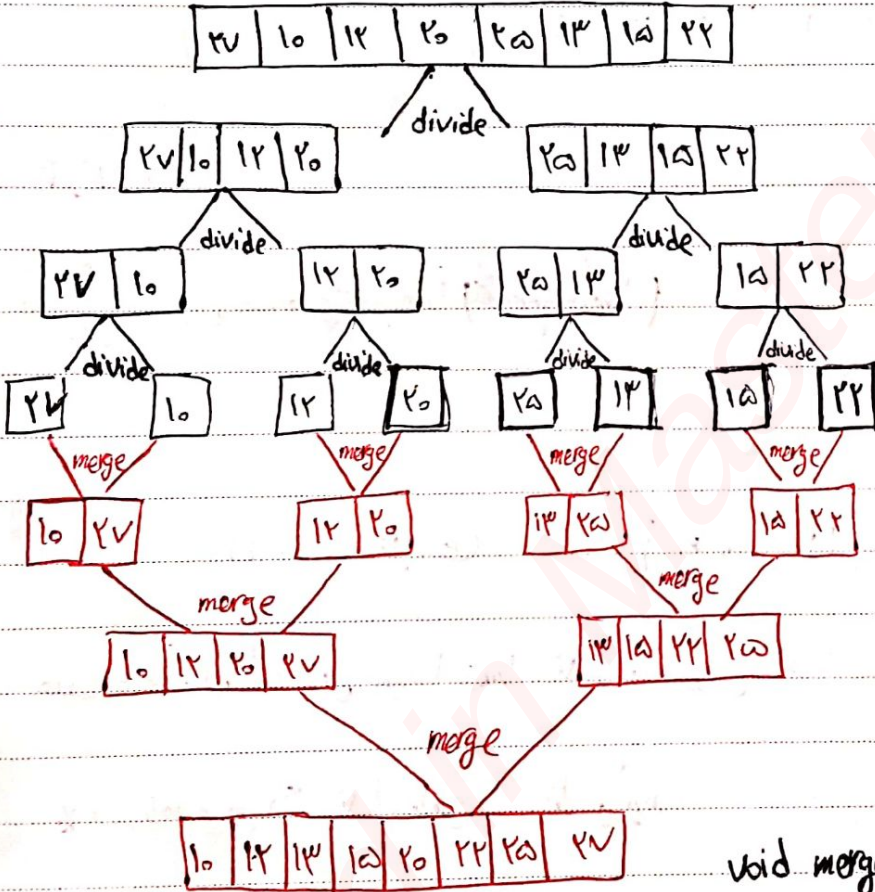 ۲۷ ۱۰ ۱۲ ۲۰ ۲۵ ۱۳ ۱۵ ۲۲
divide
۲۷ ۱۰ ۱۲ ۲۰ ۲۵ ۱۳ ۱۵ ۲۲
divide divide
۲۷ ۱۰ ۱۲ ۲۰ ۲۵ ۱۳ ۱۵ ۲۲
divide divide divide divide
۲۷ ۱۰ ۱۲ ۲۰ ۲۵ ۱۳ ۱۵ ۲۲
merge merge merge merge
۱۰ ۲۷ ۱۲ ۲۰ ۱۳ ۲۵ ۱۵ ۲۲
merge merge
۱۰ ۱۲ ۲۰ ۲۷ ۱۳ ۱۵ ۲۲ ۲۵
merge
۱۰ ۱۲ ۱۳ ۱۵ ۲۰ ۲۲ ۲۵ ۲۷
void